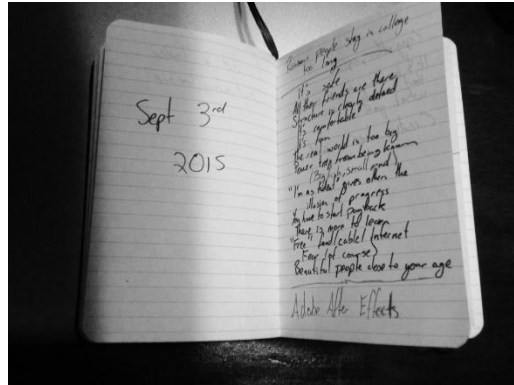 Sept 3rd
2015
Reasons people stay in college
too long
it's safe
All their friends are there
Structure is clearly defined
It's comfortable
It's fun
The real world is too big
Power trip from being
(Big fish, small pond)
"I'm a student" gives others the
illusion of progress
You have to start payback
"There is more to learn"
"Free" food/cable/Internet
Fear (of course)
Beautiful people close to your age
Adobe After Effects